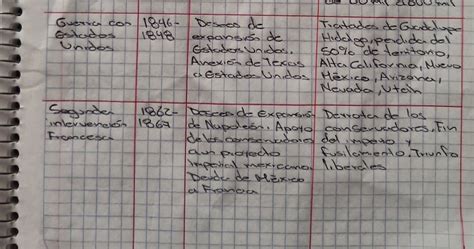 Guerra con
Estados
Unidos
1846-
1848
Deseos de
expansión de
Estados Unidos.
Anexión de Texas
a Estados Unidos
Tratados de Guadalupe
Hidalgo, perdida del
50% de territorio,
Alta California, Nuevo
México, Arizona,
Nevada, Utah
Segunda
intervención
Francesa
1862-
1867
Deseos de Expansión
de Napoleón. Apoyo
de los conservadores
a un
Imperial mexicano.
Deuda de México
a Francia
Derrota de los
conservadores. Fin
del imperio y
fusilamiento. Triunfo
liberales